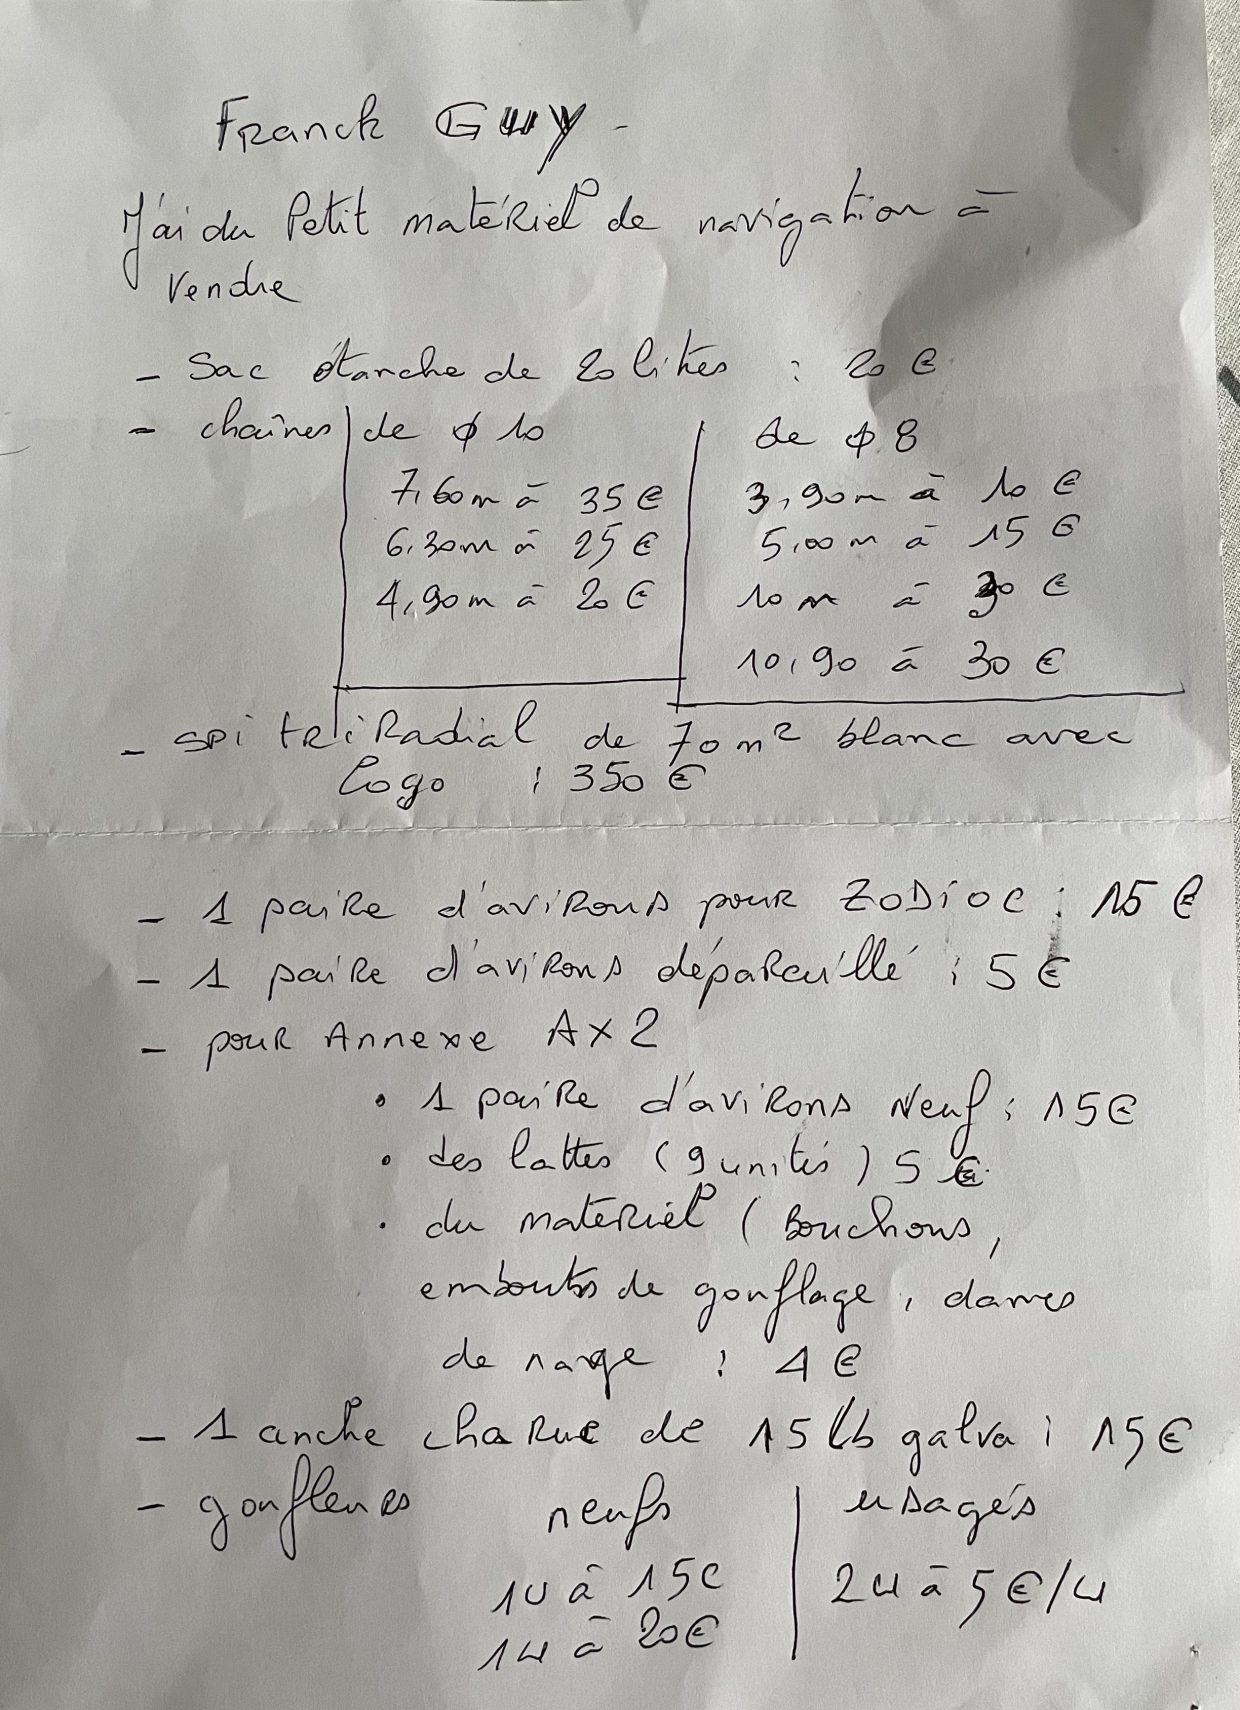 Franck GUY -
J'ai du Petit matériel de navigation à
Vendre
- Sac étanche de 20 litres : 20 €
- chaînes | de ϕ 10 | de ϕ 8
7,60m à 35 € | 3,90m à 10 €
6,30m à 25 € | 5,00m à 15 €
4,90m à 20 € | 10m à 30 €
10,90 à 30 €
- SPi triRadial de 70m² blanc avec
logo : 350 €
- 1 paire d'avirons pour ZODiac : 15 €
- 1 paire d'avirons dépareillé : 5 €
- pour Annexe AX2
• 1 paire d'avirons Neuf : 15 €
• des lattes (9 unités) 5 €
• du matériel (Bouchons,
embouts de gonflage, dames
de nage : 4 €
- 1 ancre charue de 15 lb galva : 15 €
- gonfleurs neufs | usagés
1U à 15€ | 2U à 5€/U
1U à 20€